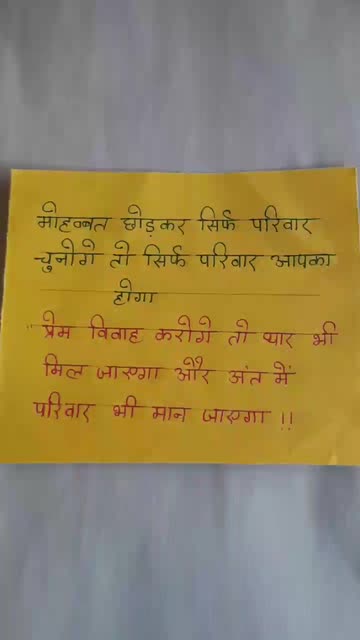 मोहब्बत छोड़कर सिर्फ परिवार
चुनोगे तो सिर्फ परिवार आपका
होगा
"प्रेम विवाह करोगे तो प्यार भी
मिल जाएगा और अंत में
परिवार भी मान जाएगा !!